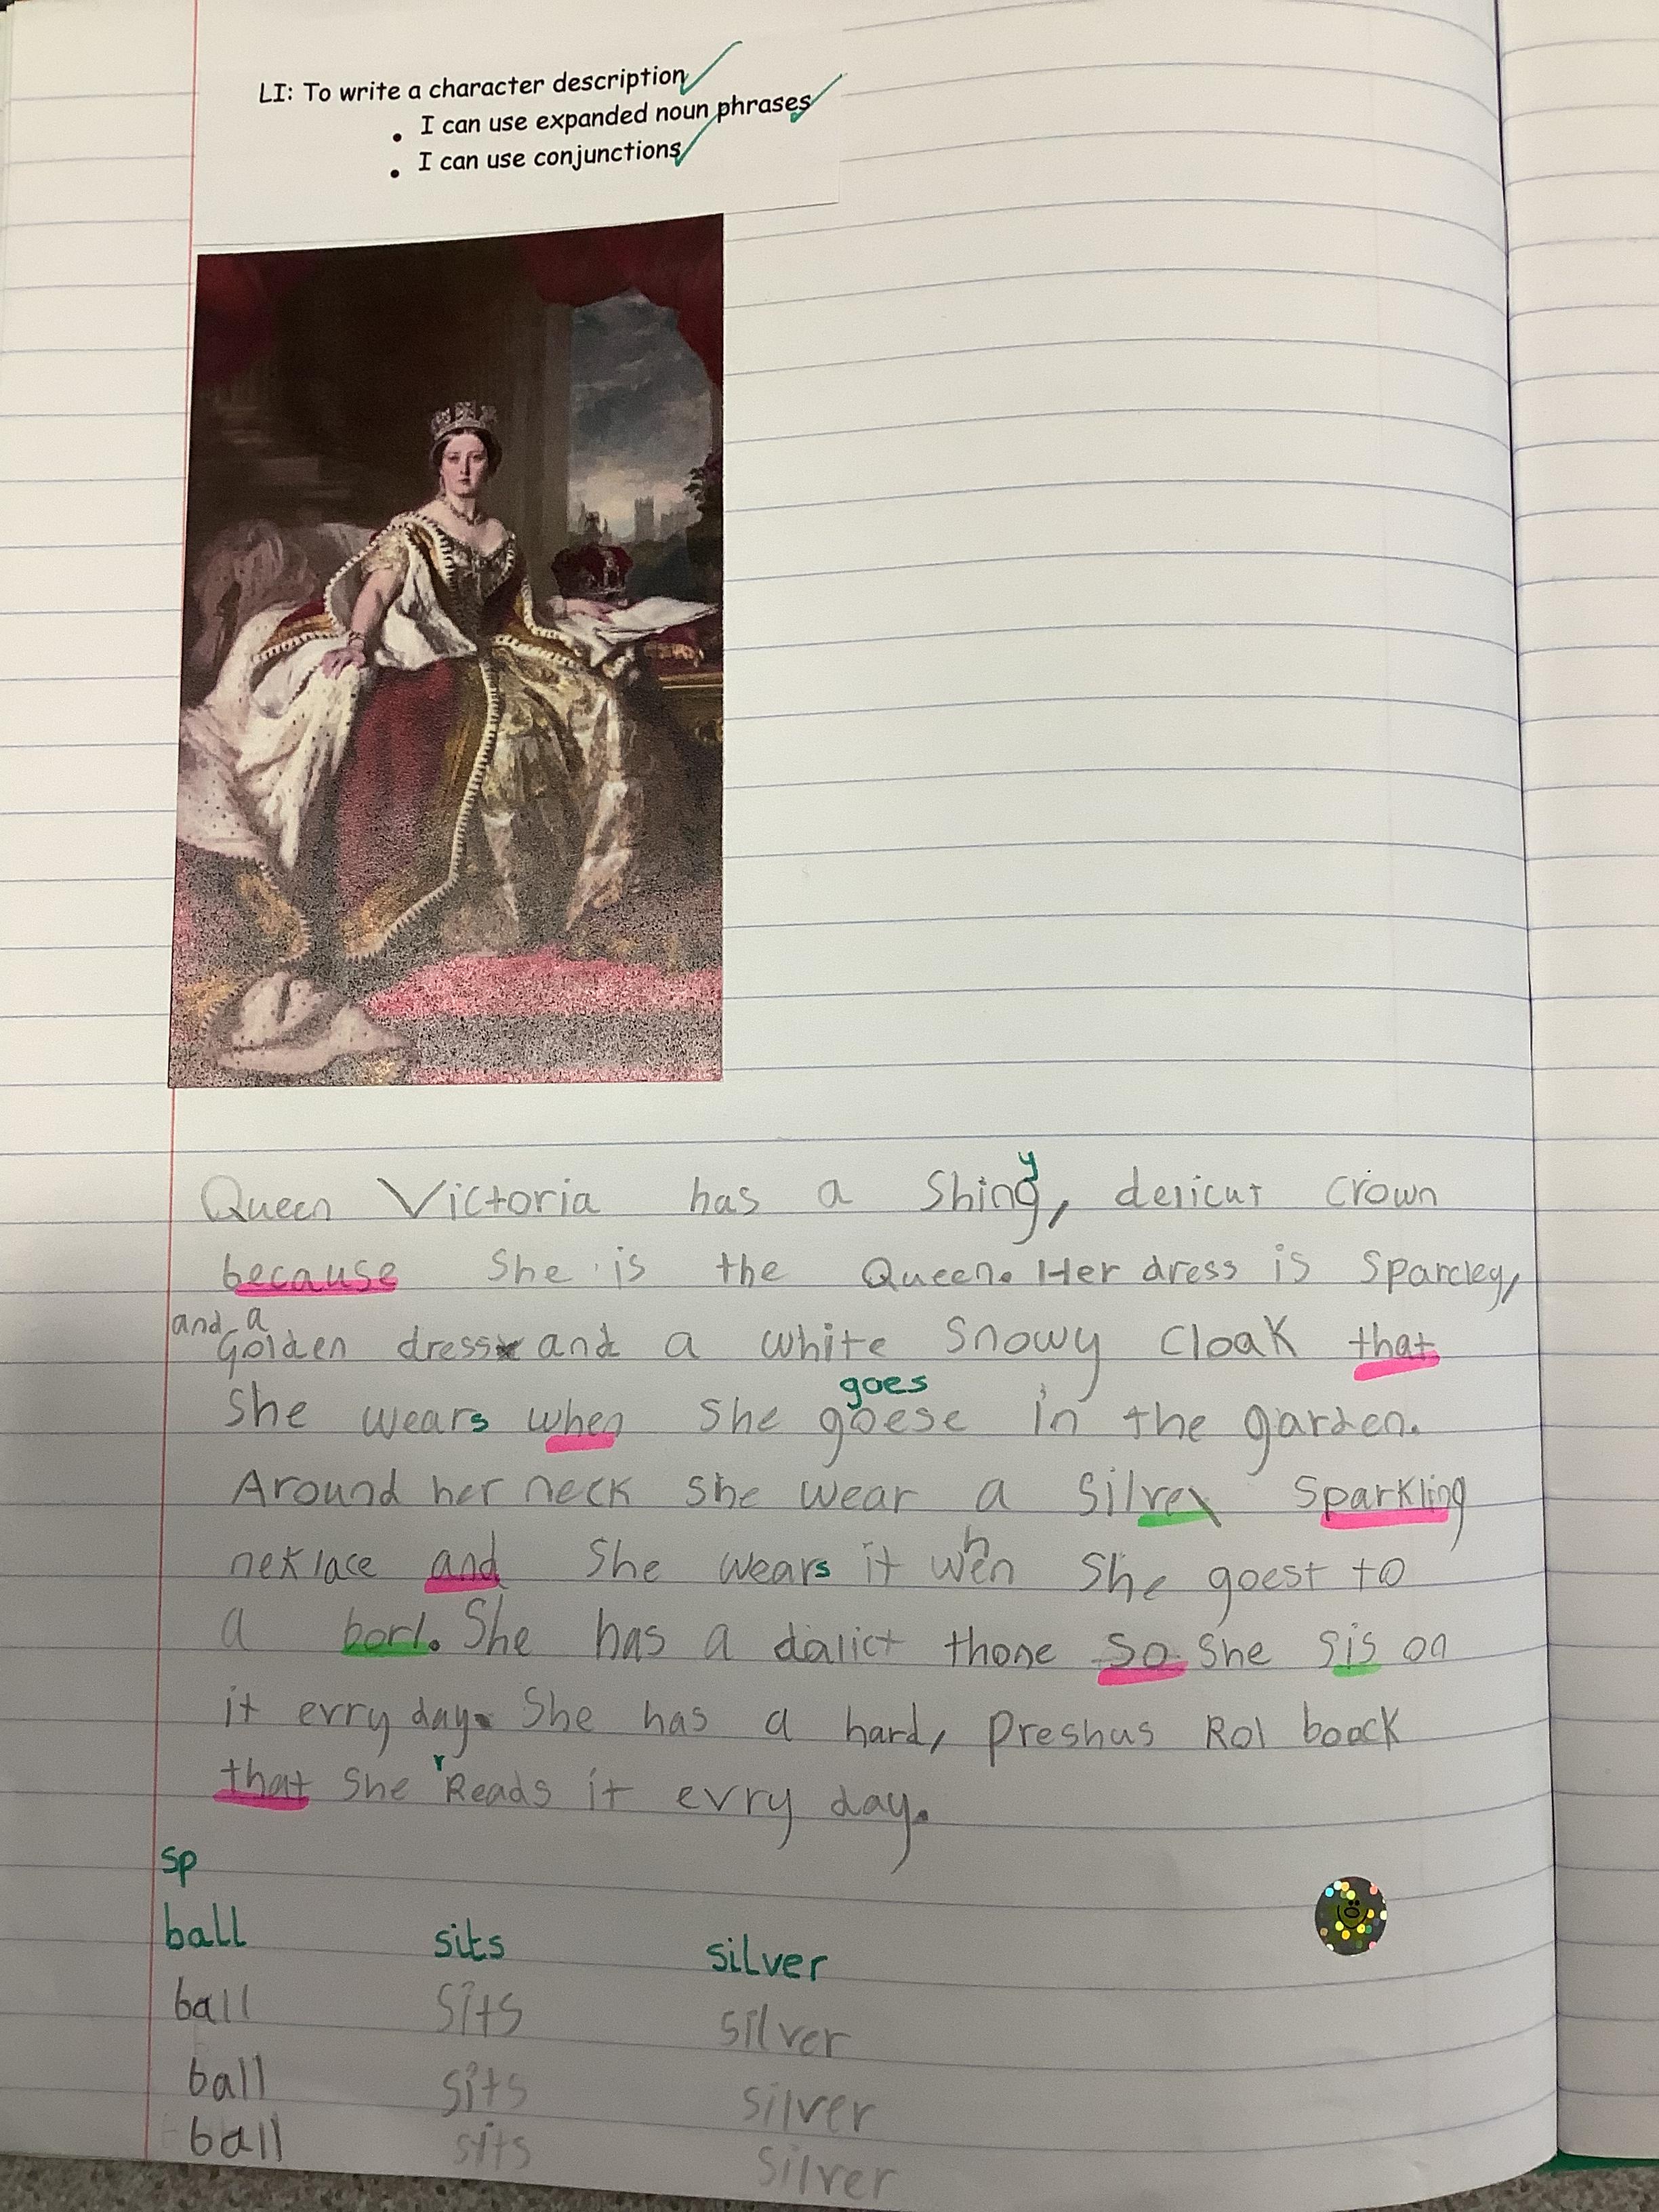 LI: To write a character description
• I can use expanded noun phrases
• I can use conjunctions
y
Queen Victoria has a Shing, delicut crown
because she is the Queen. Her dress is Sparcley,
and a
Golden dress and a white snowy cloak that
goes
she wears when she goese in the garden.
Around her neck she wear a silver sparkling
neklace and she wears it when she goest to
a borl. She has a dalict thone so she sis on
it evrry day. She has a hard, preshus Rol boock
r
that she Reads it evry day.
sp
ball sits silver
ball sits silver
ball sits silver
ball sits silver